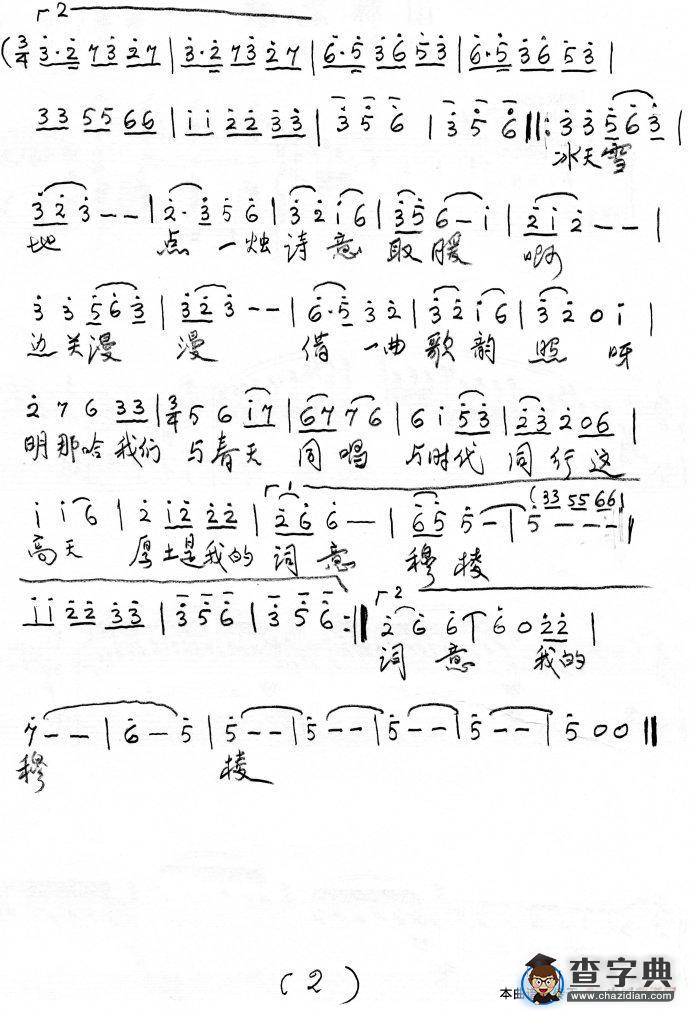 ┌2
(3/4 3·2 73 27 | 3·2 73 27 | 6·5 36 53 | 6·5 36 53 |
33 55 66 | ii 22 33 | 3 5 6 | 3 5 6 ‖: 3 3 5 6 3 |
冰天雪
3 2 3 - - | 2·3 5 6 | 3 2 i 6 | 3 5 6 - i | 2 i 2 - - |
地 点一烛诗意取暖 啊
3 3 5 6 3 | 3 2 3 - - | 6·5 3 2 | 3 2 i 6 | 3 2 0 i |
边关漫 漫 借一曲歌韵照 呀
2 7 6 33 | 3/4 5 6 i7 | 67 76 | 6 i 53 | 23 2 06 |
明那哈我们与春天同唱与时代同行这
(33 55 66)
i i 6 | 2 i2 22 | 2 6 6 - | 6 5 5 - | 5 - - - |
高天 厚土是我的词意 穆棱
ii 22 33 | 3 5 6 | 3 5 6 :‖ 2 6 6 | 6 0 22 |
词意 我的
7 - - | 6 - 5 | 5 - - | 5 - - | 5 - - | 5 - - | 5 0 0 ‖
穆 棱
(2)
查字典
www.chazidian.com
本曲